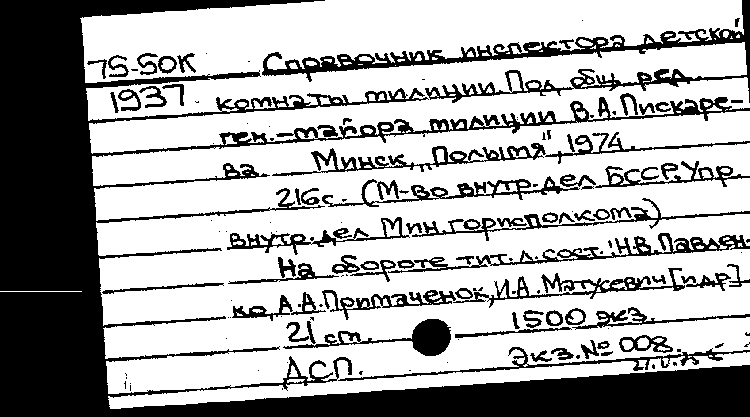 75-50К Справочник инспектора детской
1937 комнаты милиции. Под общ. ред.
ген.-майора милиции В.А. Пискаре-
ва. Минск, „Полымя", 1974.
216с. (М-во внутр. дел БССР. Упр.
внутр. дел Мин. горисполкома)
На обороте тит. л. сост.: Н.В. Павлен-
ко, А.А. Примаченок, И.А. Матусевич [и др.]
21 см. 1500 экз.
ДСП. Экз. № 008.